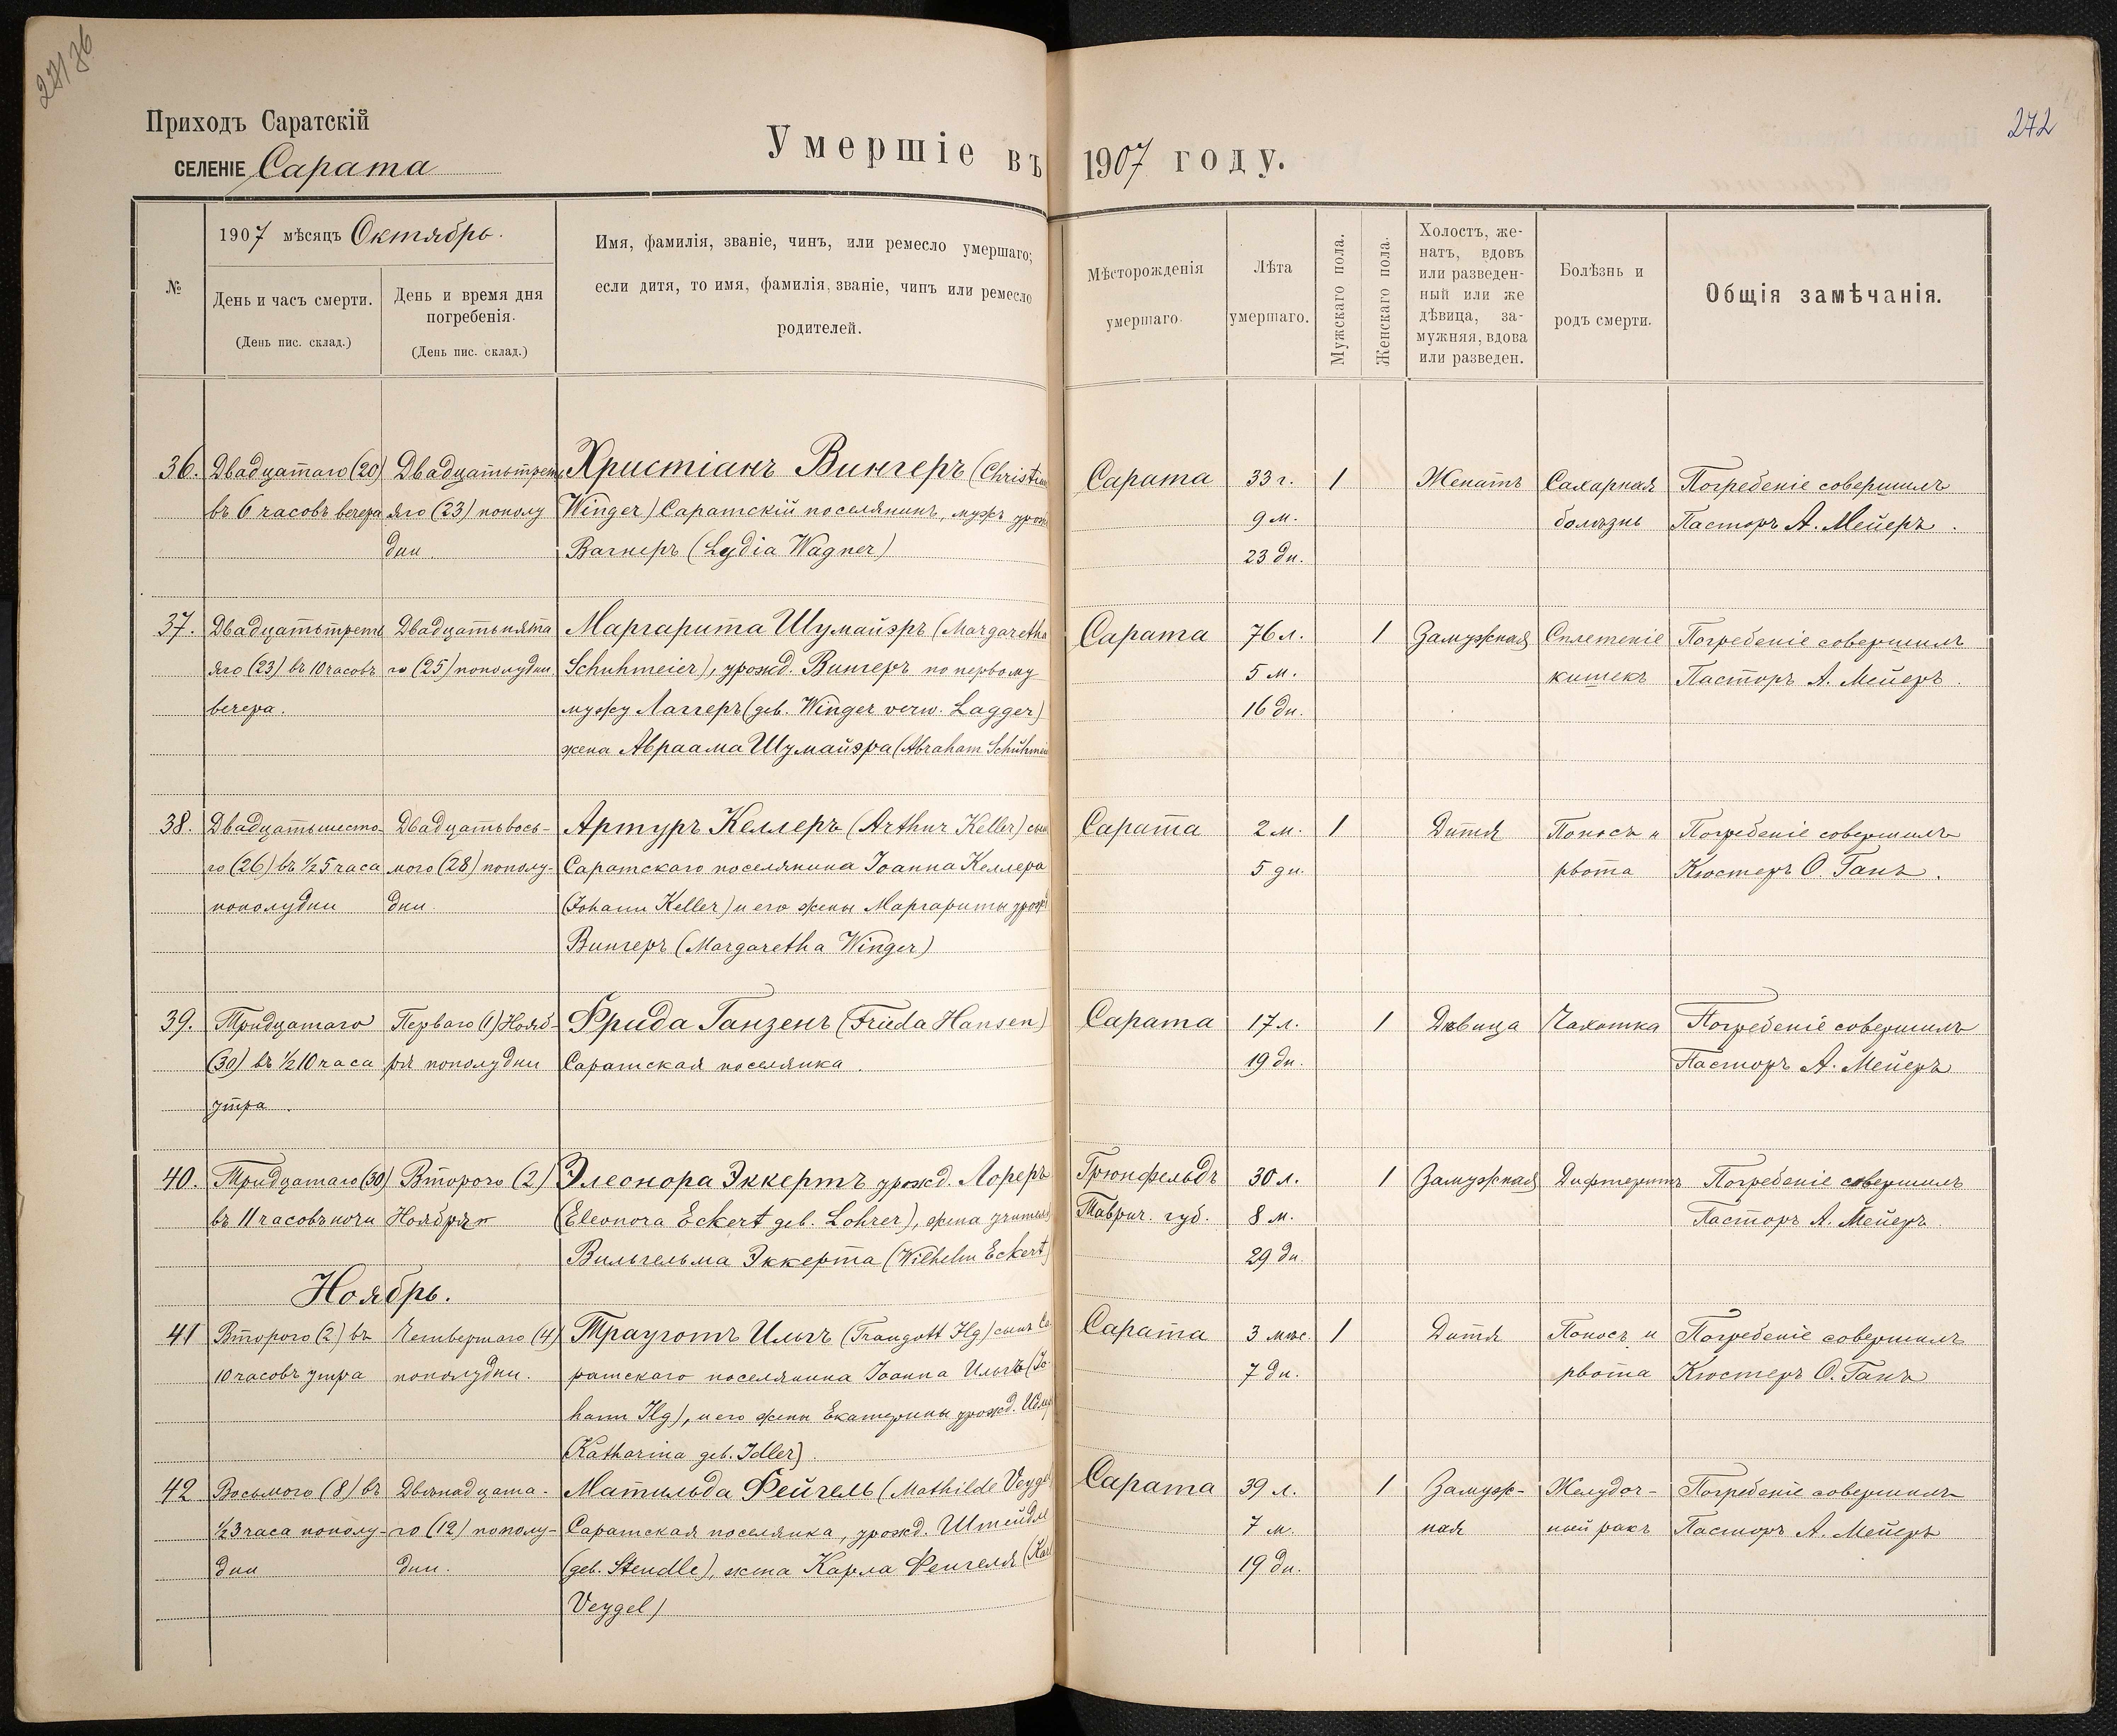 272
Приходъ Саратскій
СЕЛЕНІЕ Сарата
Умершіе въ 1907 году.
№
1907 мѣсяцъ Октябрь.
День и часъ смерти.
(День пис. склад.)
День и время дня
погребенія.
(День пис. склад.)
Имя, фамилія, званіе, чинъ, или ремесло умершаго;
если дитя, то имя, фамилія, званіе, чинъ или ремесло
родителей.
Мѣсторожденія
умершаго.
Лѣта
умершаго.
Мужскаго пола.
Женскаго пола.
Холостъ, же-
натъ, вдовъ
или разведен-
ный или же
дѣвица, за-
мужняя, вдова
или разведен.
Болѣзнь и
родъ смерти.
Общія замѣчанія.
36. Двадцатаго (20) Христіанъ Вингеръ Сарата 33 г. 1 Женатъ Сахарная Погребеніе совершилъ
въ 6 часовъ вечера яго (23) пополу Winger) Саратскій поселянинъ, мужъ 9 м. болѣзнь Пасторъ А. Мейеръ.
дни Вагнеръ (Lydia Wagner) 23 дн.
37. Двадцатьтреть Двадцатьпята Маргарита Шумайэръ (Margaretha Сарата 76 л. 1 Замужная Сплетеніе Погребеніе совершилъ
яго (23) въ 10 часовъ го (25) пополудни Schuhmeier), урожд. Вингеръ по первому 5 м. кишекъ Пасторъ А. Мейеръ.
вечера. мужу Лаггеръ (geb. Winger verw. Lagger) 16 дн.
жена Авраама Шумайэра (Abraham
38. Двадцатьшесто- Двадцатьвось- Артуръ Келлеръ (Arthur Keller) Сарата 2 м. 1 Дитя Поносъ и Погребеніе совершилъ
го (26) въ ½ 5 часа мого (28) пополу- Саратскаго поселянина Іоанна Келлера 5 дн. рвота Кюстеръ О. Ганъ.
пополудни дни (Johann Keller) и его жены Маргариты
Вингеръ (Margaretha Winger)
39. Тридцатаго Перваго (1) Нояб- Фрида Ганзенъ (Frieda Hansen) Сарата 17 л. 1 Дѣвица Чахотка Погребеніе совершилъ
(30) въ ½ 10 часа ря пополудни Саратская поселянка. 19 дн. Пасторъ А. Мейеръ
утра.
40. Тридцатаго (30) Второго (2) Элеонора Эккертъ урожд. Лореръ Грюнфельдъ 30 л. 1 Замужная Дифтеритъ Погребеніе совершилъ
въ 11 часовъ ночи Ноября (Eleonora Eckert geb. Lohrer), жена Таврич. губ. 8 м. Пасторъ А. Мейеръ.
Вильгельма Эккерта (Wilhelm Eckert) 29 дн.
Ноябрь.
41 Второго (2) въ Четвертаго (4) Трауготтъ Ильгъ (Traugott Ilg) сынъ Са Сарата 3 мѣс. 1 Дитя Поносъ и Погребеніе совершилъ
10 часовъ утра пополудни. ратскаго поселянина Іоанна Ильгъ (Jo- 7 дн. рвота Кюстеръ О. Ганъ
hann Ilg), и его жены Екатерины урожд.
(Katharina geb. Idler).
42 Восьмого (8) въ Двѣнадцата- Матильда Фейгель (Mathilde Сарата 39 л. 1 Замуж- Желудоч- Погребеніе совершилъ
½ 3 часа пополу- го (12) пополу- Саратская поселянка, урожд. 7 м. ная ный ракъ Пасторъ А. Мейеръ
дни дни. (geb. Stendle), жена Карла Фейгеля 19 дн.
Veygel)